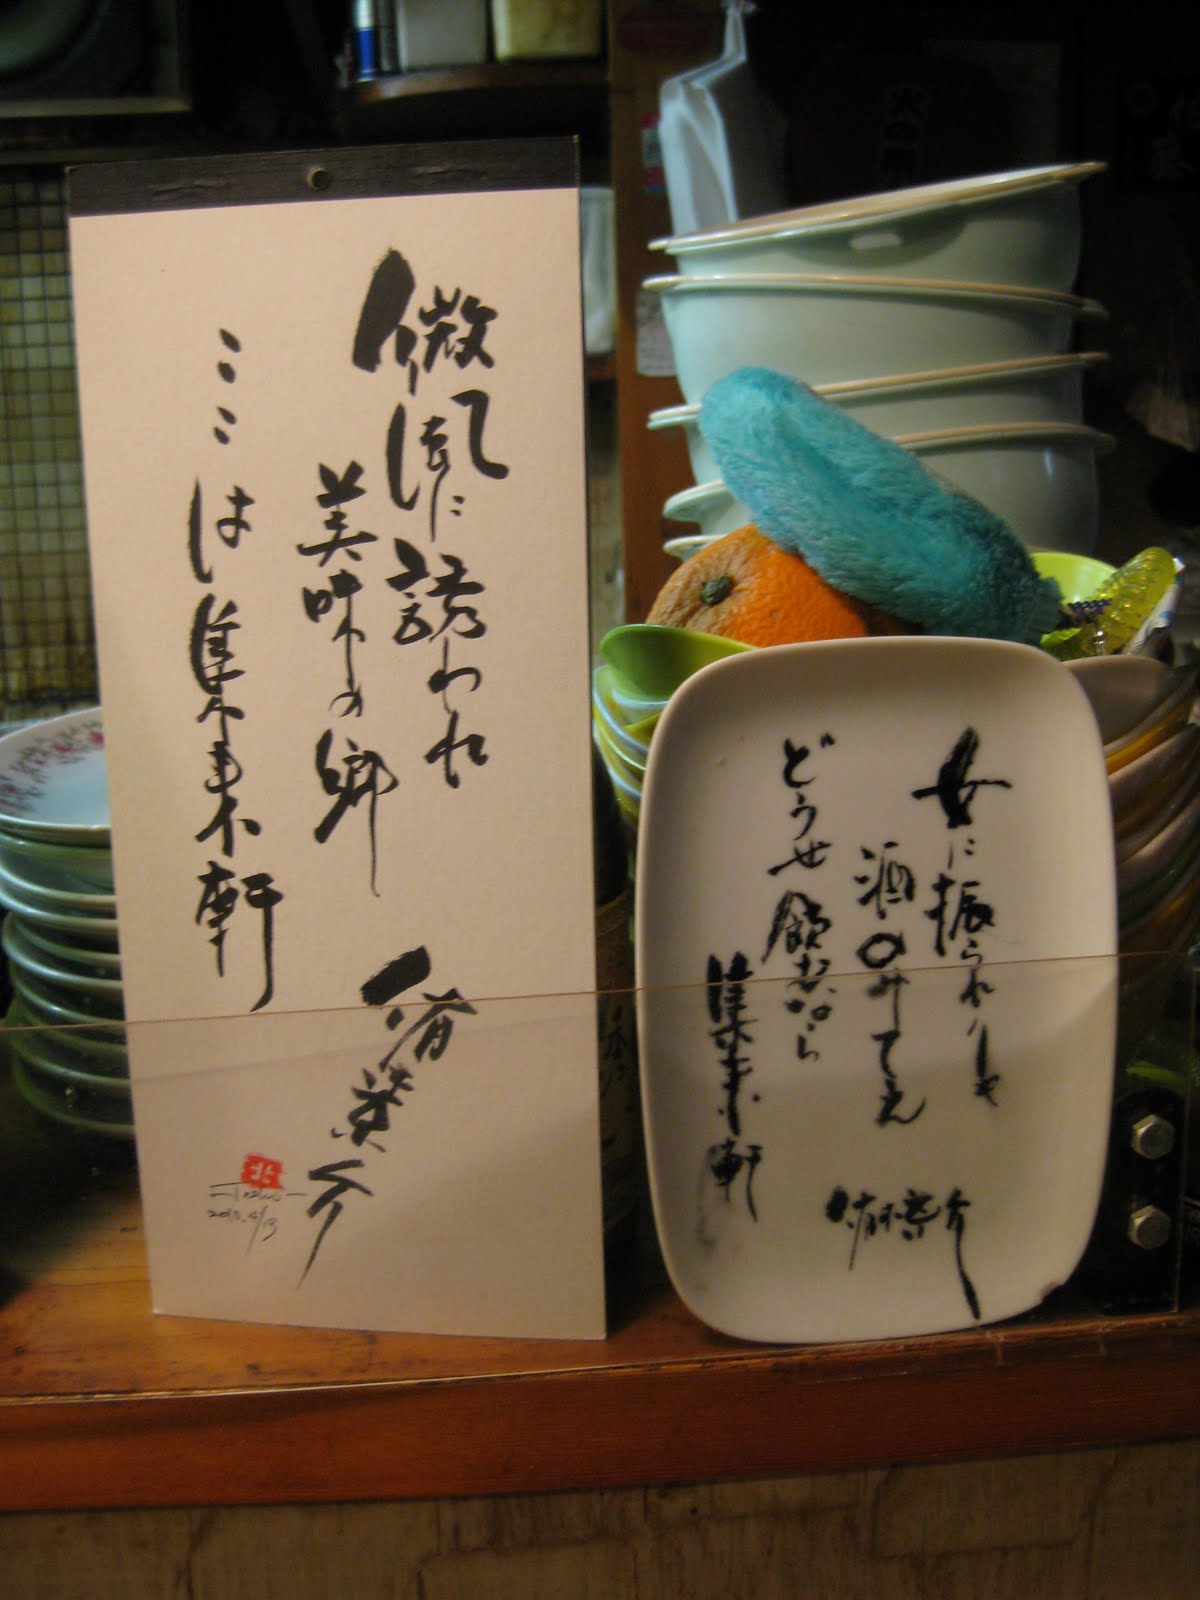 微風に誘われ
美味の郷
ここは集来軒
2010.4/13
北
女に振られりゃ
酒のみてえ
どうせ飲むなら
集来軒